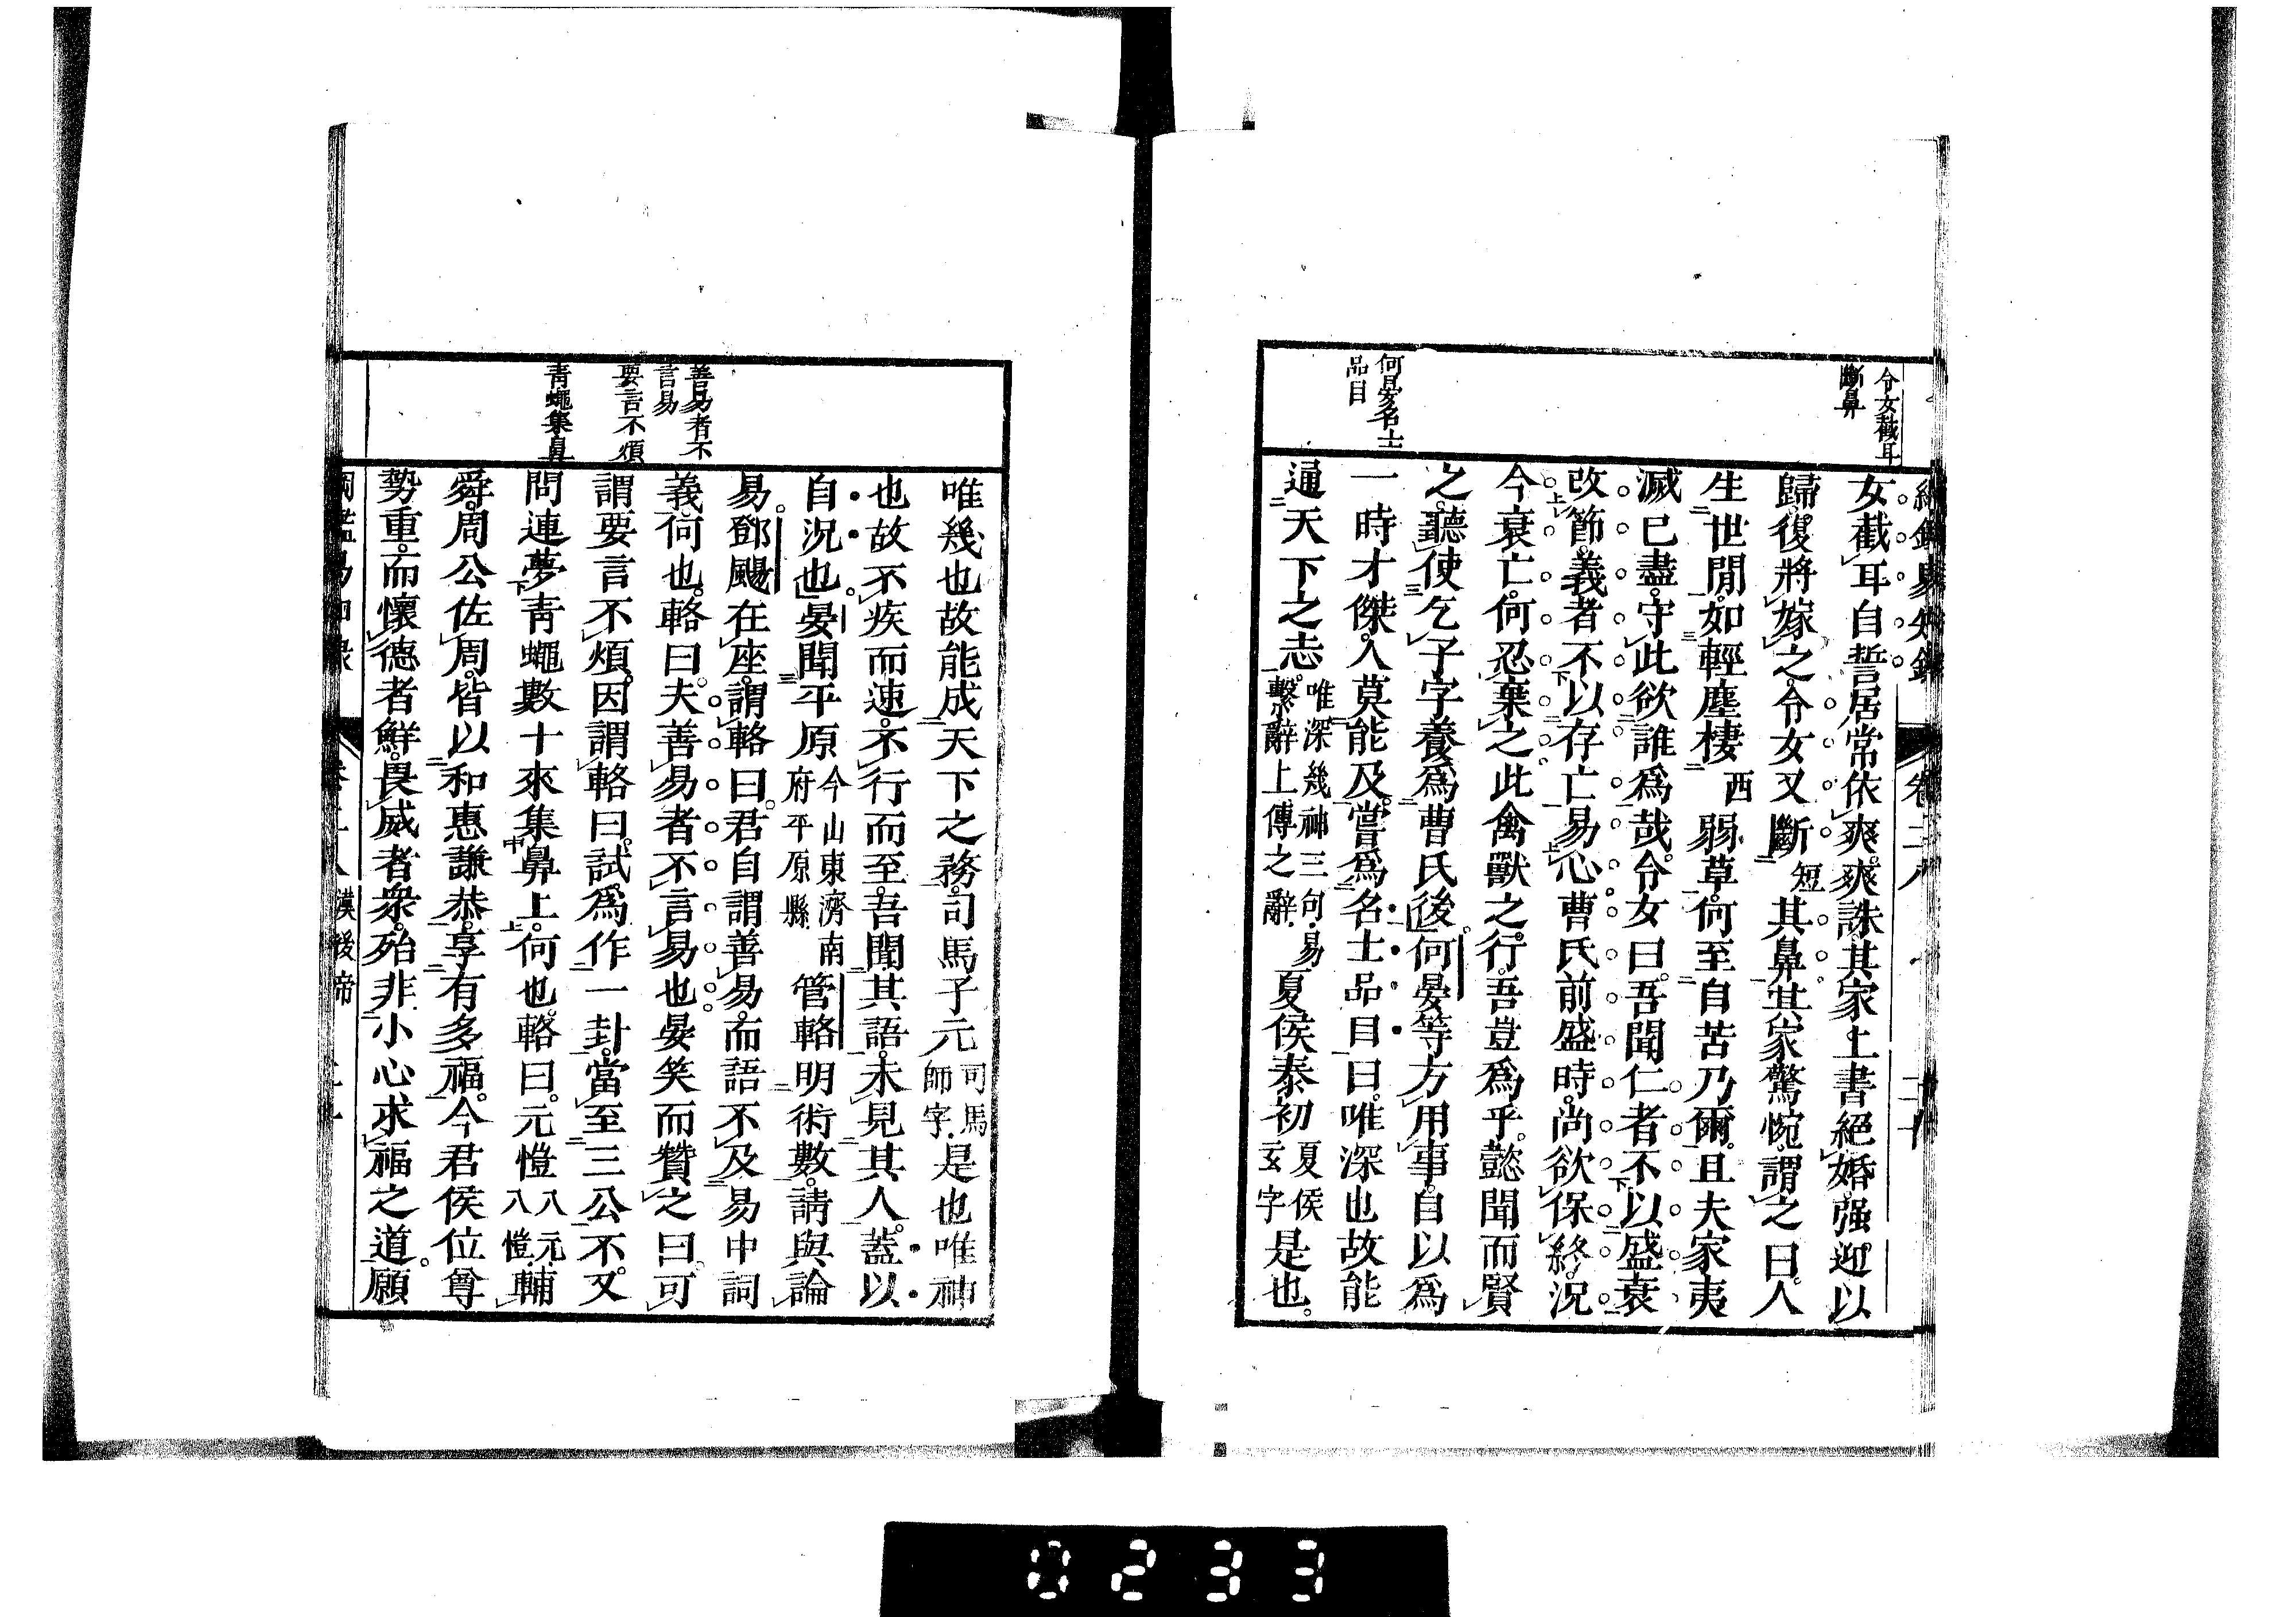 令女截耳
斷鼻
何晏名士
品目
女截耳自誓居常依爽爽誅其家上書絕婚强迎以
歸復將嫁之令女又斷短其鼻其家驚惋謂之曰人
生世間如輕塵棲西弱草何至自苦乃爾且夫家夷
滅已盡守此欲誰爲哉令女曰吾聞仁者不以盛衰
改節義者不以存亡易心曹氏前盛時尚欲保終況
今衰亡何忍棄之此禽獸之行吾豈爲乎懿聞而賢
之聽使乞子字養爲曹氏後何晏等方用事自以爲
一時才傑人莫能及嘗爲名士品目曰唯深也故能
通天下之志唯深幾神三句易繫辭上傳之辭夏侯泰初夏侯玄字是也
善易者不
言易
要言不煩
青蠅集鼻
唯幾也故能成天下之務司馬子元司馬師字是也唯神
也故不疾而速不行而至吾聞其語未見其人蓋以
自況也晏聞平原今山東濟南府平原縣管輅明術數請與論
易鄧颺在座謂輅曰君自謂善易而語不及易中詞
義何也輅曰夫善易者不言易也晏笑而贊之曰可
謂要言不煩因謂輅曰試爲作一卦當至三公不又
問連夢青蠅數十來集鼻上何也輅曰元愷八元八愷輔
舜周公佐周皆以和惠謙恭享有多福今君侯位尊
勢重而懷德者鮮畏威者衆殆非小心求福之道願
漢後帝
0233